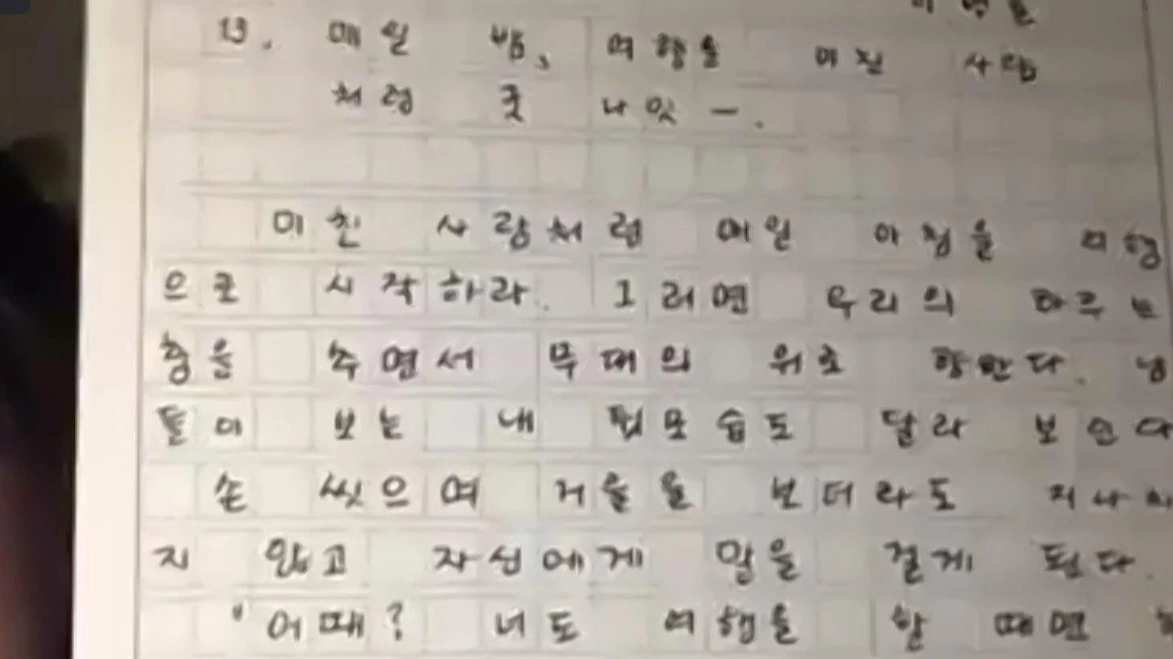 13. 매일 밤, 여행을 미친 사람
처럼
미친 사람처럼 매일 아침을 여행
으로 시작하라. 그러면 우리의 하루는
춤을 추면서 무대의 위로 향한다.
들이 보는 내 겉모습도 달라 보인다
손 씻으며 거울을 보더라도 지나치
지 않고 자신에게 말을 걸게 된다.
"어때? 너도 여행을 할 때면